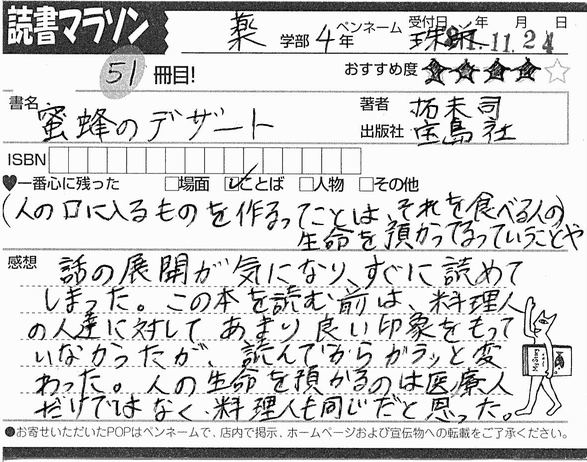 読書マラソン
薬 学部 4 年 ペンネーム 珠 受付日 年 月 日 11.24
51 冊目! おすすめ度 ★★★★☆
書名 蜜蜂のデザート 著者 拓未司
出版社 宝島社
ISBN
♥一番心に残った □場面 ☑ことば □人物 □その他
(人の口に入るものを作るってことは、それを食べる人の
生命を預かってるっていうことや
感想 話の展開が気になり、すぐに読めて
しまった。この本を読む前は、料理人
の人達に対してあまり良い印象をもって
いなかったが、読んでからガラッと変
わった。人の生命を預かるのは医療人
だけではなく、料理人も同じだと思った。
●お寄せいただいたPOPはペンネームで、店内で掲示、ホームページおよび宣伝物への転載をご了承ください。